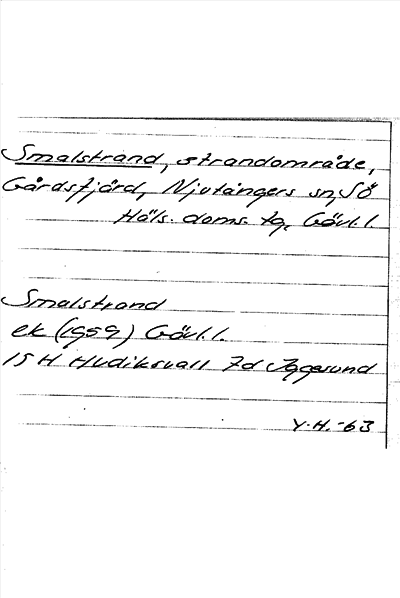 Smalstrand, strandområde,
Gårdsfjärd, Njutångers sn, SÖ
Häls. doms. tg, Gävl.l.
Smalstrand
ek (1959) Gävl.l.
15 H Hudiksvall 7d Iggesund
Y.H.-63